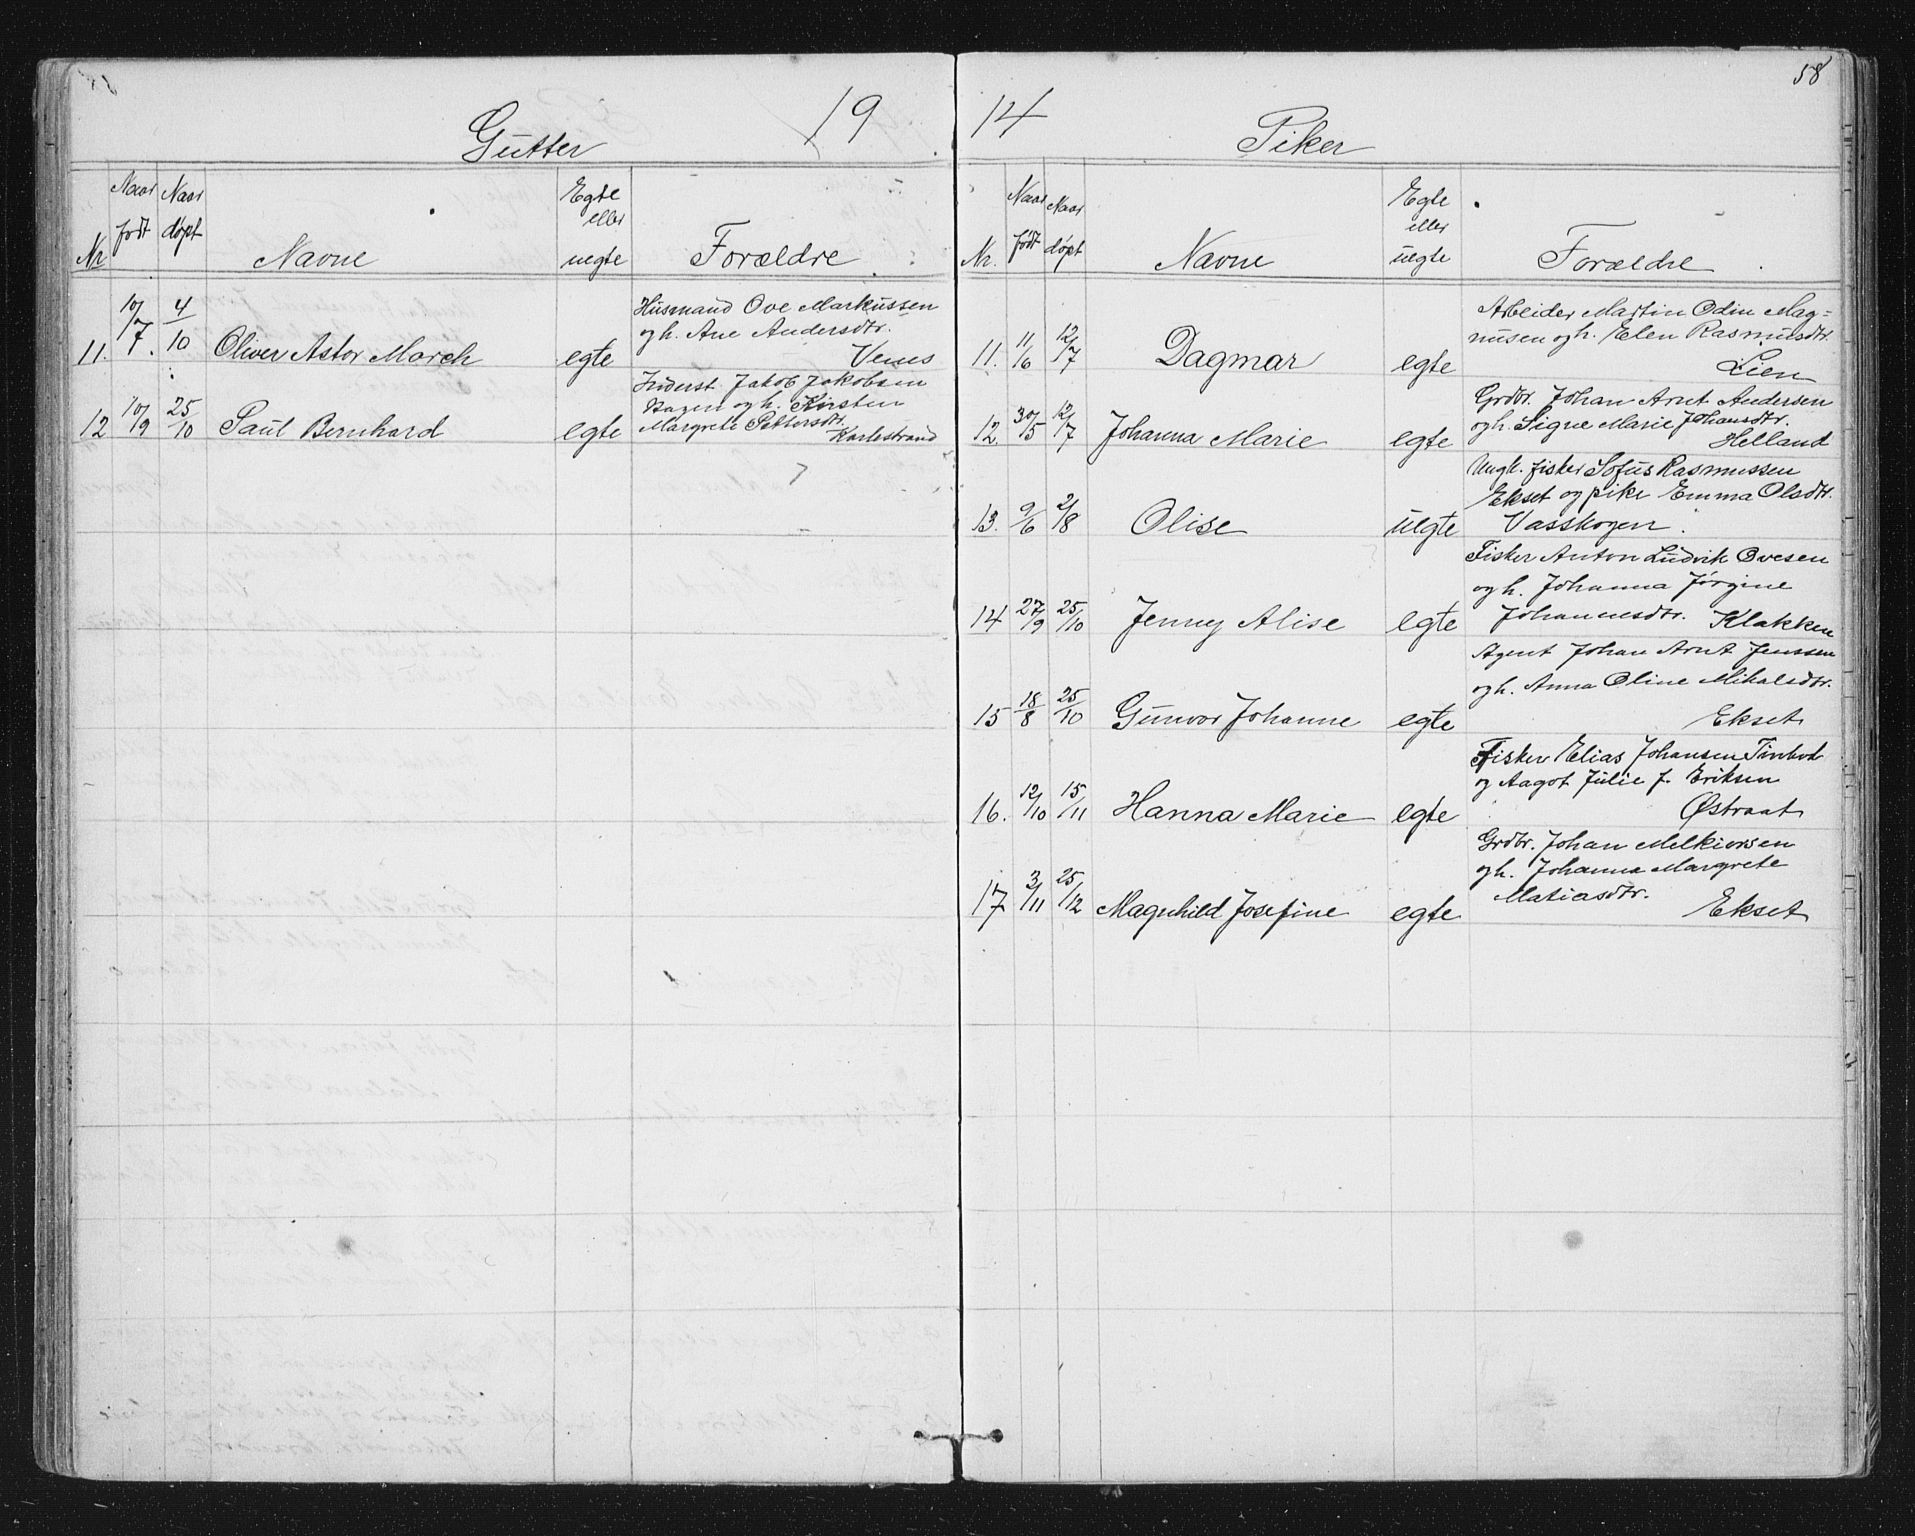 19
Gutter
Nr
Naar født
Naar døpt
Navne
Egte eller uegte
Forældre
11. 10/7. 4/10 Oliver Astor March egte
Husmand Ove Markussen
og h. Ane Andersdtr.
Venes
12 10/9 25/10 Paul Bernhard egte
Inderst Jakob Jakobsen
Hagen og h. Kirsten
Margrete Pettersdtr.
Karlestrand
58
14
Piker
Nr.
Naar født
Naar døpt
Navne
Egte eller uegte
Forældre
11. 11/6 12/7 Dagmar egte
Arbeider Martin Odin Mag=
nusen og h. Elen Rasmusdtr.
Lien
12. 30/5 12/7 Johanna Marie egte
Grdbr. Johan Arnt Andersen
og h. Signe Marie Johansdtr.
Helland
13. 9/6 2/8 Olise uegte
Ungk. fisker Sofus Rasmussen
Ekset og pike Emma Olsdtr.
Vasskogen.
14 27/9 25/10 Jenny Alise egte
Fisker Anton Ludvik Ovesen
og h. Johanna Jørgine
Johannesdtr. Klakken
15 18/8 25/10 Gunvor Johanne egte
Agent Johan Arnt Jenssen
og h. Anna Oline Mikalsdtr.
Ekset
16. 12/10 15/11 Hanna Marie egte
Fisker Elias Johansen Tinbod
og Aagot Julie f. Eriksen
Østraat
17 3/11 25/12 Magnhild Josefine egte
Grdbr. Johan Melkiorsen
og h. Johanna Margrete
Matiasdtr.
Ekset